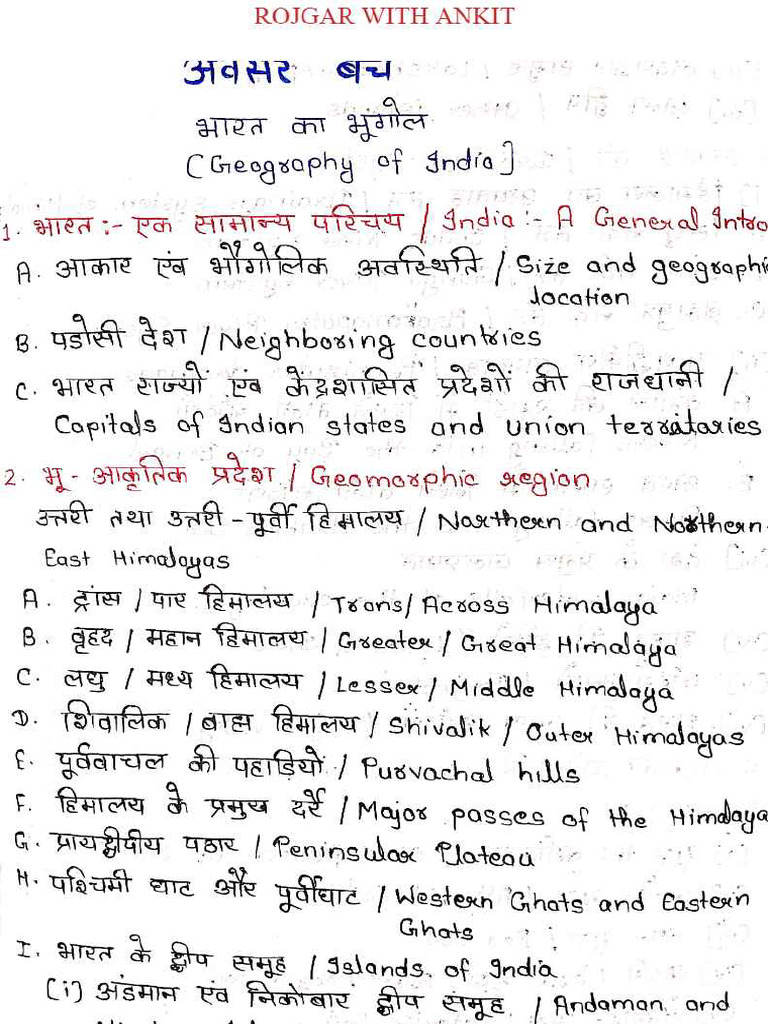 ROJGAR WITH ANKIT
अवसर बच
भारत का भूगोल
[Geography of India]
1. भारत :- एक सामान्य परिचय / India :- A General Intro
A. आकार एंव भौगोलिक अवस्थिति / Size and geographi
location
B. पडोसी देश / Neighboring countries
C. भारत राज्यों एंव केंद्रशासित प्रदेशों की राजधानी /
Capitals of Indian states and union territaries
2. भू-आकृतिक प्रदेश / Geomorphic region
उत्तरी तथा उत्तरी-पूर्वी हिमालय / Northern and Northern-
East Himalayas
A. ट्रांस / पार हिमालय / Trans/ Across Himalaya
B. वृहद / महान हिमालय / Greater / Great Himalaya
C. लघु / मध्य हिमालय / Lesser / Middle Himalaya
D. शिवालिक / बाह्म हिमालय / Shivalik / Outer Himalayas
E. पूर्ववाचल की पहाड़ियों / Purvachal hills
F. हिमालय के प्रमुख दर्रे / Major passes of the Himalaya
G. प्रायद्वीदीय पठार / Peninsular Plateau
H. पश्चिमी घाट और पूर्वीघाट / Western Ghats and Eastern
Ghats
I. भारत के द्वीप समूह / Islands of India
(i) अंडमान एंव निकोबार द्वीप समूह / Andaman and